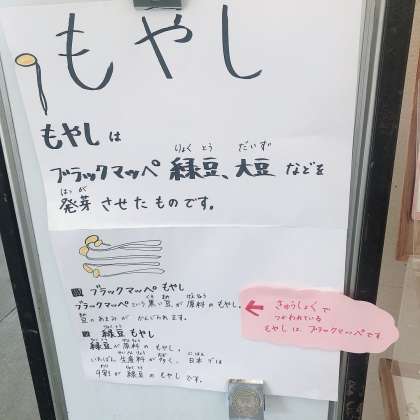 もやし
もやしは
ブラックマッペ 緑豆、大豆 などを
発芽 させたものです。
ブラックマッペ もやし
ブラックマッペという黒い豆が原料のもやし。
豆のあまみが かんじられます。
緑豆 もやし
緑豆が原料の もやし。
いちばん 生産料が多く、日本では
9割が 緑豆のもやし です。
きゅうしょくで
つかわれている
もやしは、ブラックマッペです